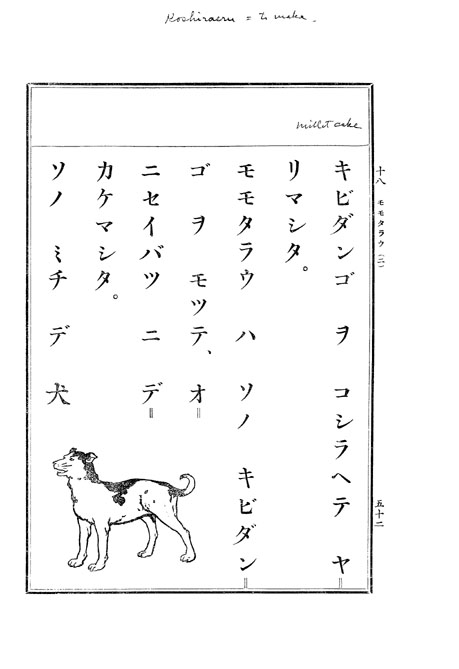 Koshiraeru = to make.
millet cake
十八 モモタラウ (二)
五十二
キビダンゴ ヲ コシラヘテ ヤ
リマシタ。
モモタラウ ハ ソノ キビダン
ゴ ヲ モツテ、 オ
ニセイバツ ニ デ
カケマシタ。
ソノ ミチ デ 犬